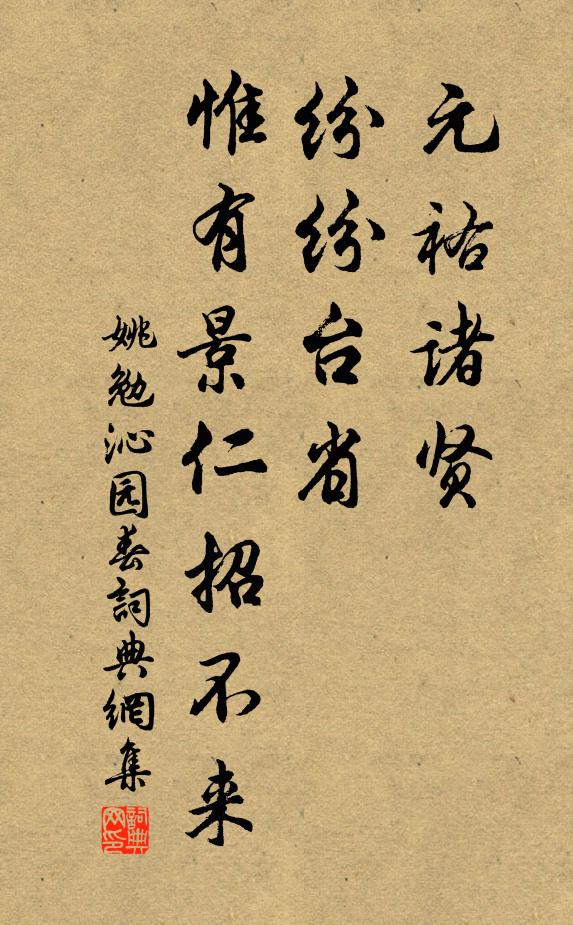 元祐诸贤
纷纷台省
惟有景仁招不来
姚勉沁园春詞典網集
詞典网印